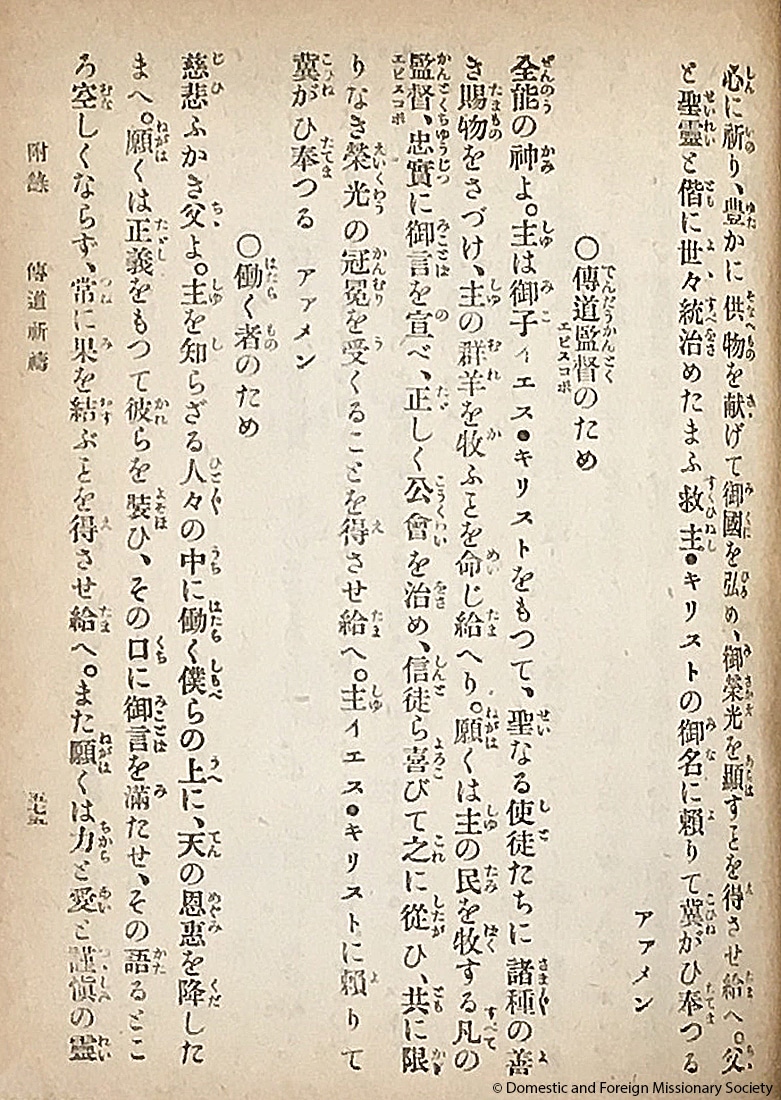 心に祈り、豊かに供物を献げて御國を弘め、御榮光を顯すことを得させ給へ。父
と聖靈と偕に世々、統治めたまふ救主・キリストの御名に頼りて冀がひ奉つる
アァメン
〇傳道監督のため
全能の神よ。主は御子イエス・キリストをもつて、聖なる使徒たちに諸種の善
き賜物をさづけ、主の群羊を牧ふことを命じ給へり。願くは主の民を牧する凡の
監督、忠實に御言を宣べ、正しく公會を治め、信徒ら喜びて之に從ひ、共に限
りなき榮光の冠冕を受くることを得させ給へ。主イエス・キリストに頼りて
冀がひ奉つる アァメン
〇働く者のため
慈悲ふかき父よ。主を知らざる人々の中に働く僕らの上に、天の恩惠を降した
まへ。願くは正義をもつて彼らを裝ひ、その口に御言を滿たせ、その語るとこ
ろ空しくならず、常に果を結ぶことを得させ給へ。また願くは力と愛と謹愼の靈
附錄 傳道祈禱 五七五
© Domestic and Foreign Missionary Society